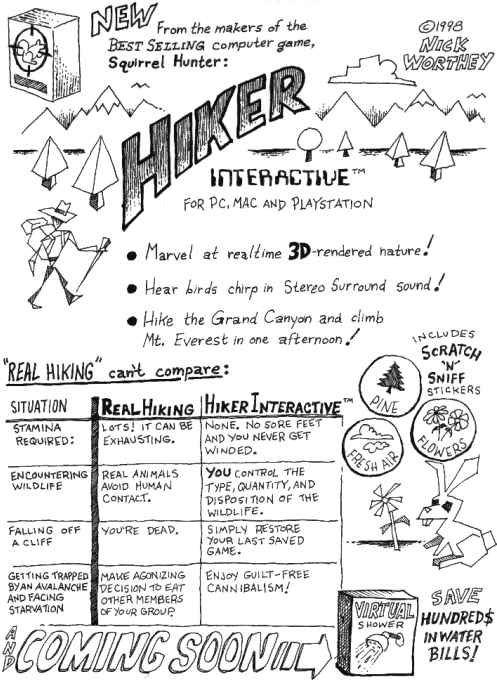 NEW
From the makers of the
BEST SELLING computer game,
Squirrel Hunter:
©1998
NICK
WORTHEY
HIKER
INTERACTIVE™
FOR PC, MAC AND PLAYSTATION
• Marvel at realtime 3D-rendered nature!
• Hear birds chirp in Stereo Surround sound!
• Hike the Grand Canyon and climb
Mt. Everest in one afternoon!
INCLUDES
SCRATCH
'N'
SNIFF
STICKERS
PINE
FRESH AIR
FLOWERS
"REAL HIKING" can't compare:
SITUATION REAL HIKING HIKER INTERACTIVE™
STAMINA
REQUIRED:
LOTS! IT CAN BE
EXHAUSTING.
NONE. NO SORE FEET
AND YOU NEVER GET
WINDED.
ENCOUNTERING
WILDLIFE
REAL ANIMALS
AVOID HUMAN
CONTACT.
YOU CONTROL THE
TYPE, QUANTITY, AND
DISPOSITION OF THE
WILDLIFE.
FALLING OFF
A CLIFF
YOU'RE DEAD.
SIMPLY RESTORE
YOUR LAST SAVED
GAME.
GETTING TRAPPED
BY AN AVALANCHE
AND FACING
STARVATION
MAKE AGONIZING
DECISION TO EAT
OTHER MEMBERS
OF YOUR GROUP.
ENJOY GUILT-FREE
CANNIBALISM!
AND COMING SOON
VIRTUAL
SHOWER
SAVE
HUNDRED$
IN WATER
BILLS!